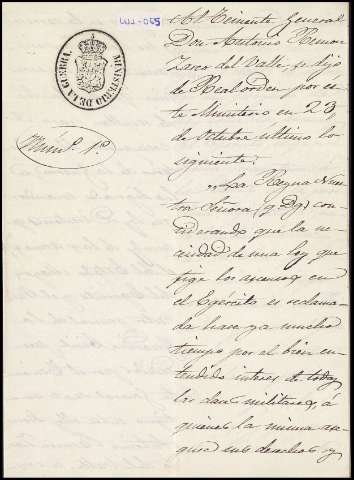 MINISTERIO DE LA GUERRA.
Núm.º 1.º
Al Teniente General
Don Antonio Remon
Zarco del Valle se dijo
de Real orden por es-
te Ministerio en 23
de Octubre último lo
siguiente:
"La Reyna Nues-
tra Señora (q. D. g.) con-
siderando que la ne-
cesidad de una ley que
fije los ascensos en
el Egercito es reclama-
da hace ya mucho
tiempo por el bien en-
tendido interes de todas
las clases militares, á
quienes la misma ase-
gure sus derechos y